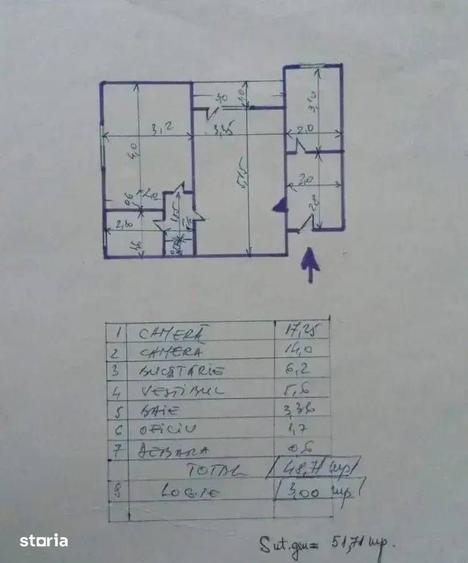 3,2
3,35
2,0
4,0
2,0
2,80
1 CAMERĂ 17,25
2 CAMERA 14,0
3 BUCĂTĂRIE 6,2
4 VESTIBUL 5,6
5 BAIE
6 OFICIU 1,7
7 DEBARA 0,6
TOTAL 48,71 mp
8 LOGIE 3,00 mp
S ut.gen = 51,71 mp.
storia